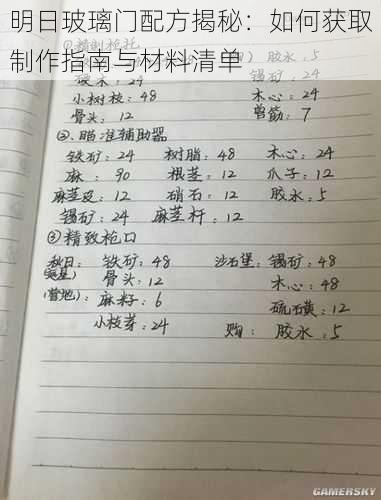 明日玻璃门配方揭秘：如何获取
制作指南与材料清单
①精制枪托
胶水：5
硬木：24 锡矿：24
小树枝：48 木心：24
骨头：12 兽筋：7
②.瞄准辅助器
铁矿：24 树脂：48 木心：24
麻：90 根茎：12 爪子：12
麻茎皮：12 硝石：12 胶水：5
锡矿：24 麻茎杆：12
③精致枪口
秋日：铁矿：48 沙石堡：锡矿：48
骨头：12 木心：48
(营地)：麻籽：6 硫磺：12
小枝芽：24 购：胶水：5
GAMERSKY